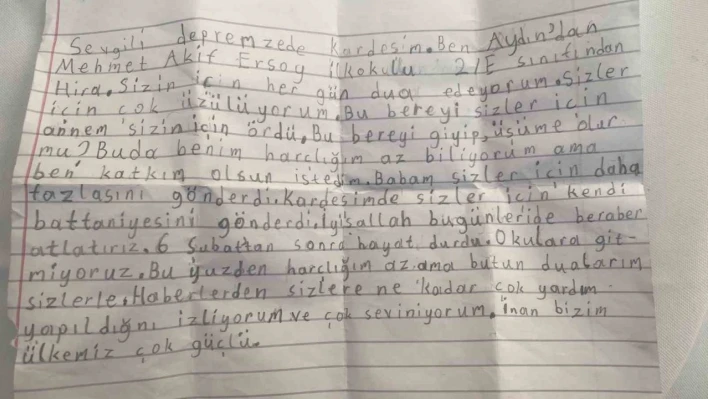 Sevgili depremzede kardesim. Ben Aydın'dan
Mehmet Akif Ersoy ilkokulu 2/E sınıfından
Hira. Sizin için her gün dua edeyorum. Sizler
icin çok üzülüyorum. Bu bereyi sizler icin
annem sizin için ördü. Bu bereyi giyip, üşüme olur
mu? Buda benim harclığım az biliyorum ama
ben katkım olsun istedim. Babam sizler icin daha
fazlasını gönderdi. Kardesimde sizler icin kendi
battaniyesini gönderdi. İyisallah bugünleride beraber
atlatırız. 6 Şubattan sonra hayat durdu. Okulara git-
miyoruz. Bu yuzden harclığım az. ama butun dualarım
sizlerle. Haberlerden sizlere ne kadar çok yardım
yapıldığnı izliyorum ve çok seviniyorum. inan bizim
ülkemiz çok güçlü.